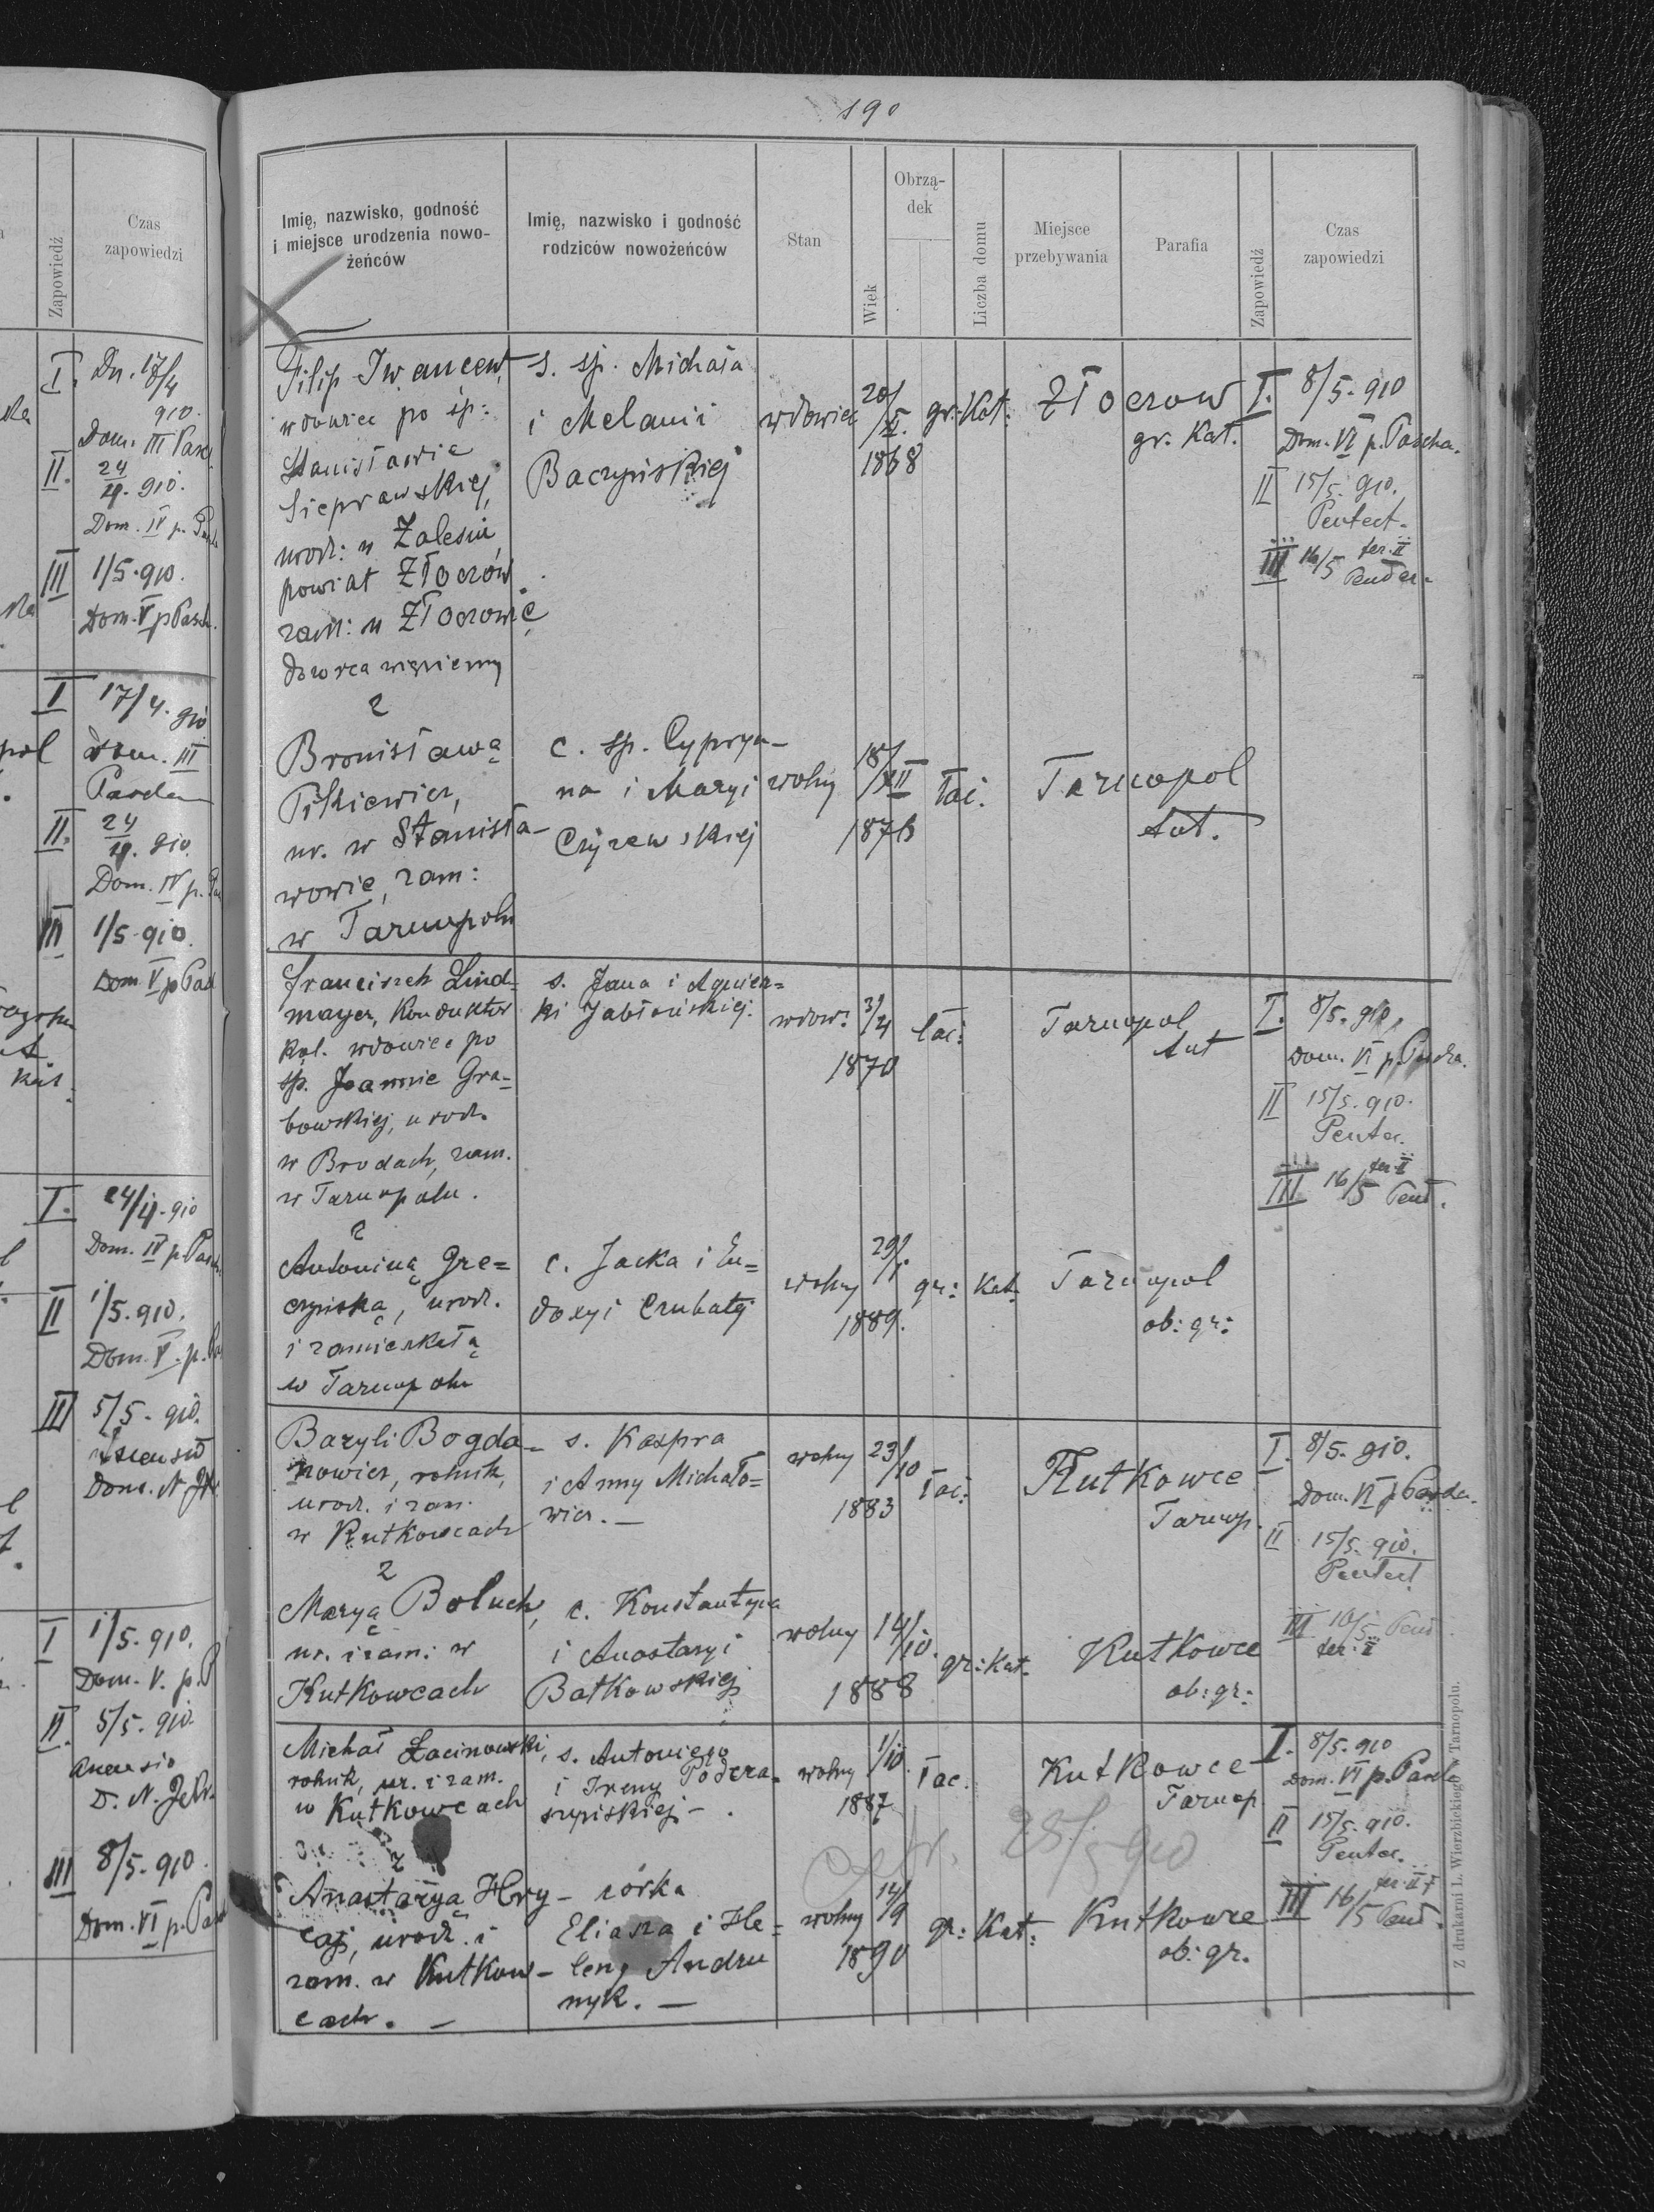 190
Imię, nazwisko, godność
i miejsce urodzenia nowo-
żeńców
Imię, nazwisko i godność
rodziców nowożeńców
Stan
Wiek
Obrzą-
dek
Liczba domu
Miejsce
przebywania
Parafia
Zapowiedź
Czas
zapowiedzi
Filip Iwancew,
wdowiec po śp:
Stanisławie
Sieprawskiej,
urodz: w Zalesiu
powiat Złoczów
zam: w Złoczowie
dozorca więzienny
s. śp. Michała
i Melanii
Baczyńskiej
wdowiec
20/X.
1868
gr: Kat:
Złoczow
gr. Kat.
I. 8/5. 910
Dom. VI p. Pascha.
II 15/5. 910.
Pentect.
III 16/5 fer. II
z
Bronisławą
Pitkiewicz,
ur. w Stanisła-
wowie, zam:
w Tarnopolu
c. śp. Cyprya-
na i Maryi
Czyżewskiej
wolny
18/XII
1876
łać.
Tarnopol
łać.
Franciszek Lind-
mayer, Konduktor
kol. wdowiec po
śp. Joannie Gra-
bowskiej, urodz.
w Brodach, zam.
w Tarnopolu.
s. Jana i Agniesz-
ki Jabłońskiej.
wdow:
3/4
1870
łać:
Tarnopol
łać
I. 8/5. 910.
Dom. VI p. Pascha.
II 15/5. 910.
Pentec.
III 16/5 fer. II Pent.
z
Antoniną Gre-
czyńską, urodz.
i zamieszkałą
w Tarnopolu
c. Jacka i Eu-
doxyi Czubatej
wolny
29/1
1889.
gr: Kat:
Tarnopol
ob: gr:
Bazyli Bogda-
nowicz, rolnik,
urodz. i zam.
w Kutkowcach
s. Kaspra
i Anny Michało-
wicz. —
wolny
23/10
1883
łać:
Kutkowce
Tarnop.
I. 8/5. 910.
Dom. VI p Pascha.
II 15/5. 910.
Pentect
III 16/5 Pent
fer: II
z
Maryą Boluch,
ur. i zam: w
Kutkowcach
c. Konstantyna
i Anastazyi
Bałkowskiej
wolny
14/10.
1888
gr: Kat.
Kutkowce
ob: gr:
Michał Łacinowski,
rolnik, ur. i zam.
w Kutkowcach
s. Antoniego
i Ireny Podcza-
szyńskiej - .
wolny
1/10.
1887
łac.
Kutkowce
Tarnop
I. 8/5. 910
Dom. VI p. Pascha
II 15/5. 910.
Pentec.
III 16/5 fer: II Pent.
28/5 910
z
Anastazya Hry-
caj, urodz. i
zam. w Kutkow-
cach. —
córka
Eliasza i He-
leny Andru
nyk. —
wolny
14/9
1890
gr: Kat:
Kutkowce
ob: gr.
Z drukarni L. Wierzbickiego w Tarnopolu.
Zapowiedź
Czas
zapowiedzi
I. Dn. 17/4
910.
Dom. III Pasc.
II. 24/4. 910.
Dom. IV p.
III 1/5. 910.
Dom. V p Pasch.
I 17/4. 910
Dom. III
Pascha
II. 24/4. 910.
Dom. IV p.
III 1/5. 910.
Dom. V p Pas
I. 24/4. 910
Dom. IV p. Pasch.
II 1/5. 910.
Dom. V. p.
III 5/5. 910.
Ascensio
Dom. N.
I 1/5. 910.
Dom. V. p. P
II. 5/5. 910.
Ascensio
D. N. J.
III 8/5. 910.
Dom. VI p. Pas